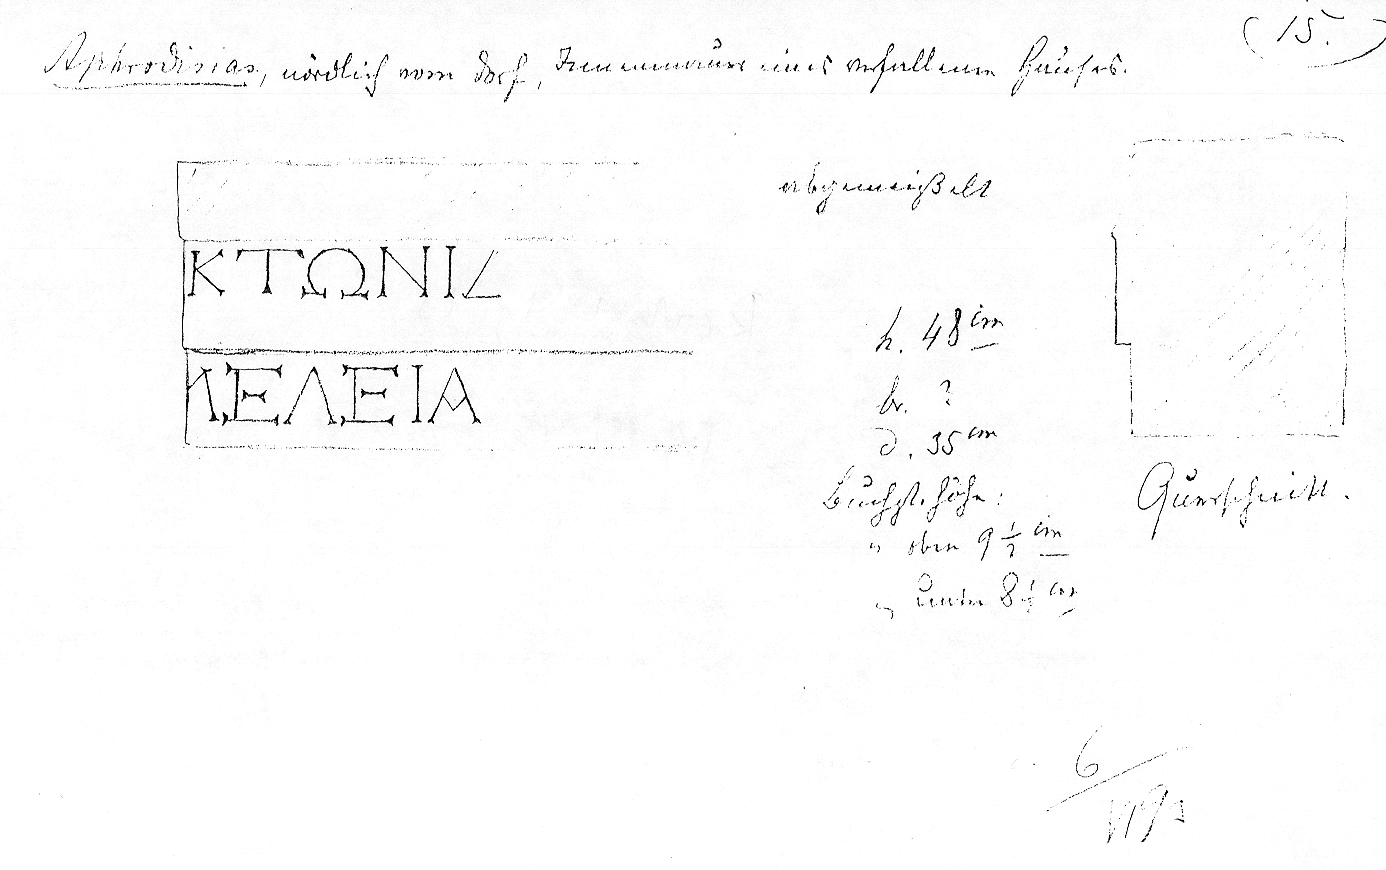 (15.)
Aphrodisias, nördlich vom Dorf, Innenmauer eines verfallenen Hauses.
abgemeißelt
ΚΤΩΝΙ
ΛΕΛΕΙΑ
h. 48 cm
br. ?
d. 35 cm
Buchst. höhe:
" oben 9 ½ cm
" unten 8 ½ cm
Querschnitt.
6